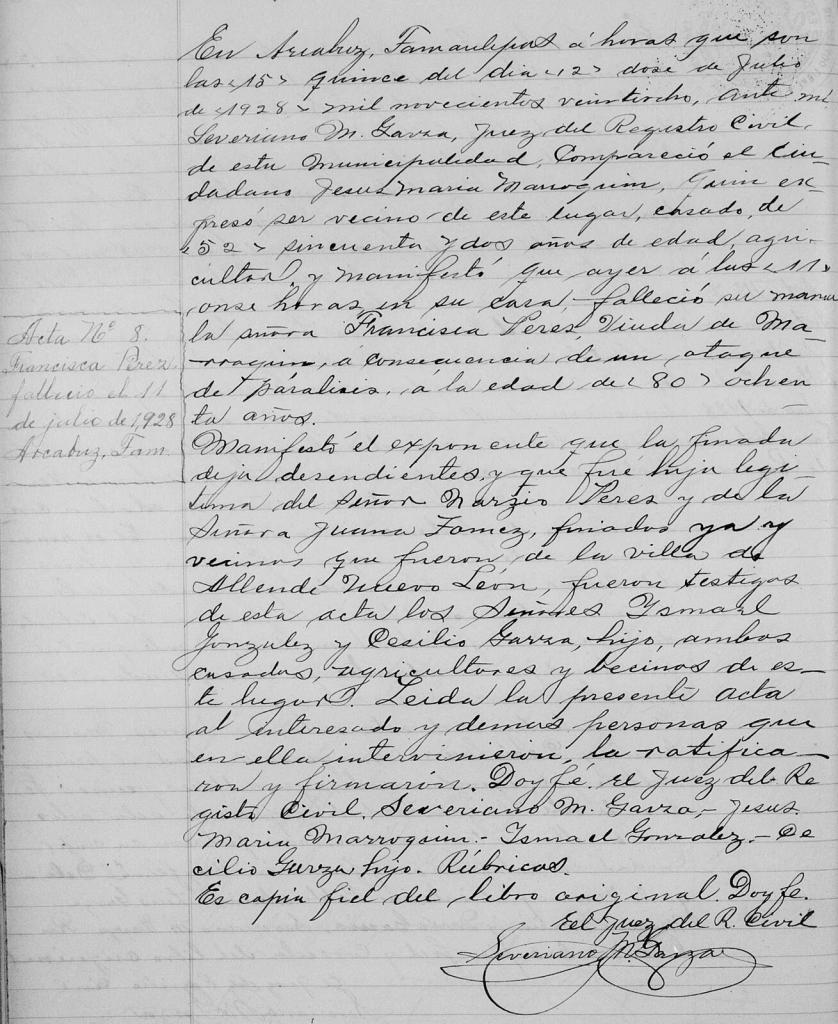 En Arcabuz, Tamaulipas á horas que son
las <15> quince del dia <12> dose de Julio
de <1928> mil novecientos veintiocho, ante mí
Severiano M. Garza, Juez del Registro Civil,
de esta Municipalidad, Compareció el Ciu-
dadano Jesus Maria Marroquin, quien ex-
presó ser vecino de este lugar, casado, de
<52> sincuenta y dos años de edad, agri-
cultor, y manifestó que ayer á las <11>
onse horas en su casa, falleció su mamá
la señora Francisca Peres, Viuda de Ma-
rroquin, á consecuencia de un ataque
de paralisis, á la edad de <80> ochen-
ta años.
Acta Nº 8.
Francisca Pérez
fallecio el 11
de julio de 1928
Arcabuz, Tam.
Manifestó el exponente que la finada
deja desendientes, y que fué hija legi-
tima del Señor Narzio Peres y de la
Señora Juana Tomez, finados ya y
vecinos que fueron, de la villa de
Allende Nuevo León, fueron testigos
de esta acta los Señores Ysmael
Gonzalez y Cesilio Garza, hijo, ambos
casados, agricultores y becinos de es-
te lugar. Leida la presente acta
al interesado y demas personas que
en ella intervinieron, la ratifica-
ron y firmarón. Doy fé. el Juez del Re
gisto Civil, Severiano M. Garza,- Jesus
Maria Marroquin.- Ismael Gonzalez.- Ce
cilio Garza hijo. Rúbricas.
Es copia fiel del libro original. Doy fe.
El Juez del R. Civil
Severiano M. Garza